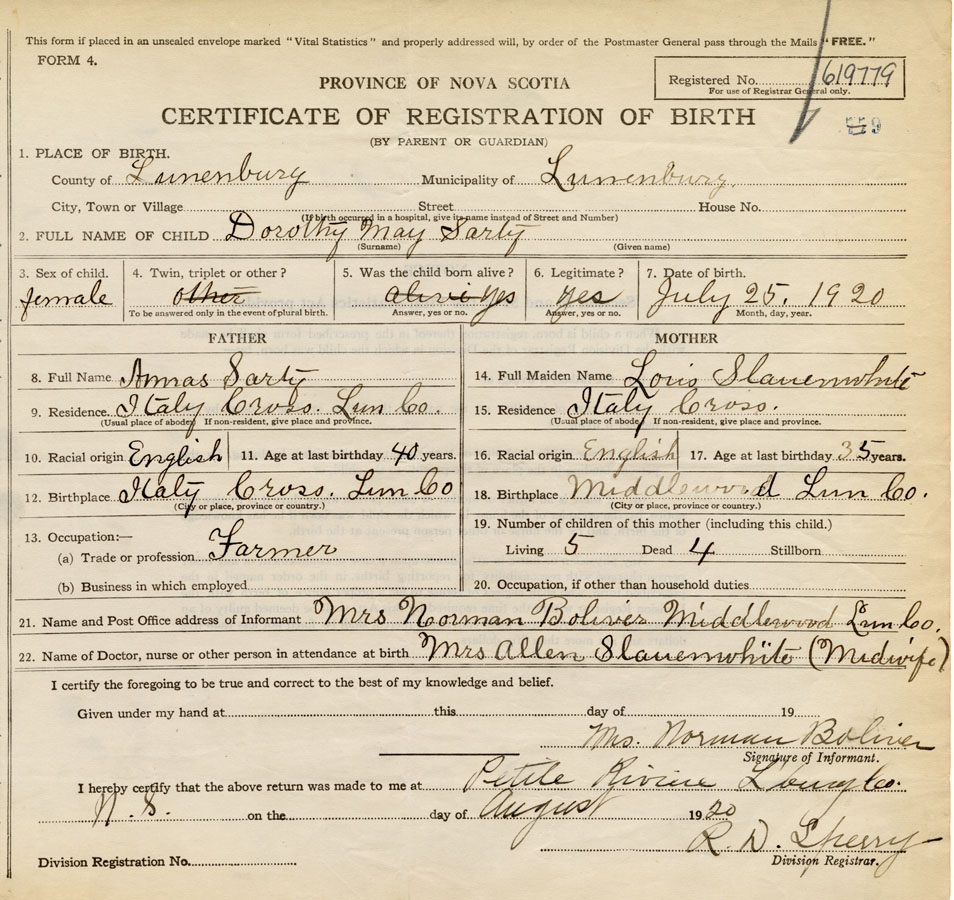 This form if placed in an unsealed envelope marked "Vital Statistics" and properly addressed will, by order of the Postmaster General pass through the Mails "FREE."
FORM 4.
PROVINCE OF NOVA SCOTIA
Registered No. 619779
For use of Registrar General only.
CERTIFICATE OF REGISTRATION OF BIRTH
(BY PARENT OR GUARDIAN)
1. PLACE OF BIRTH.
County of Lunenburg Municipality of Lunenburg.
City, Town or Village Street House No.
(If birth occurred in a hospital, give its name instead of Street and Number)
2. FULL NAME OF CHILD Dorothy May Sarty
(Surname) (Given name)
3. Sex of child. 4. Twin, triplet or other? 5. Was the child born alive? 6. Legitimate? 7. Date of birth.
female other alive yes yes July 25. 1920
To be answered only in the event of plural birth. Answer, yes or no. Answer, yes or no. Month, day, year.
FATHER MOTHER
8. Full Name Annas Sarty 14. Full Maiden Name Lois Slauenwhite
9. Residence Italy Cross. Lun Co. 15. Residence Italy Cross.
(Usual place of abode) If non-resident, give place and province. (Usual place of abode) If non-resident, give place and province.
10. Racial origin English 11. Age at last birthday 40 years. 16. Racial origin English 17. Age at last birthday 35 years.
12. Birthplace Italy Cross. Lun Co 18. Birthplace Middlewood Lun Co.
(City or place, province or country.) (City or place, province or country.)
13. Occupation:— 19. Number of children of this mother (including this child.)
(a) Trade or profession Farmer Living 5 Dead 4 Stillborn
(b) Business in which employed 20. Occupation, if other than household duties
21. Name and Post Office address of Informant Mrs Norman Boliver Middlewood Lun Co.
22. Name of Doctor, nurse or other person in attendance at birth Mrs Allen Slauenwhite (Midwife)
I certify the foregoing to be true and correct to the best of my knowledge and belief.
Given under my hand at this day of 19
Mrs. Norman Boliver
Signature of Informant.
I hereby certify that the above return was made to me at Petite Riviere Co.
N. S. on the day of August 1920
R. D. Sperry
Division Registrar.
Division Registration No.